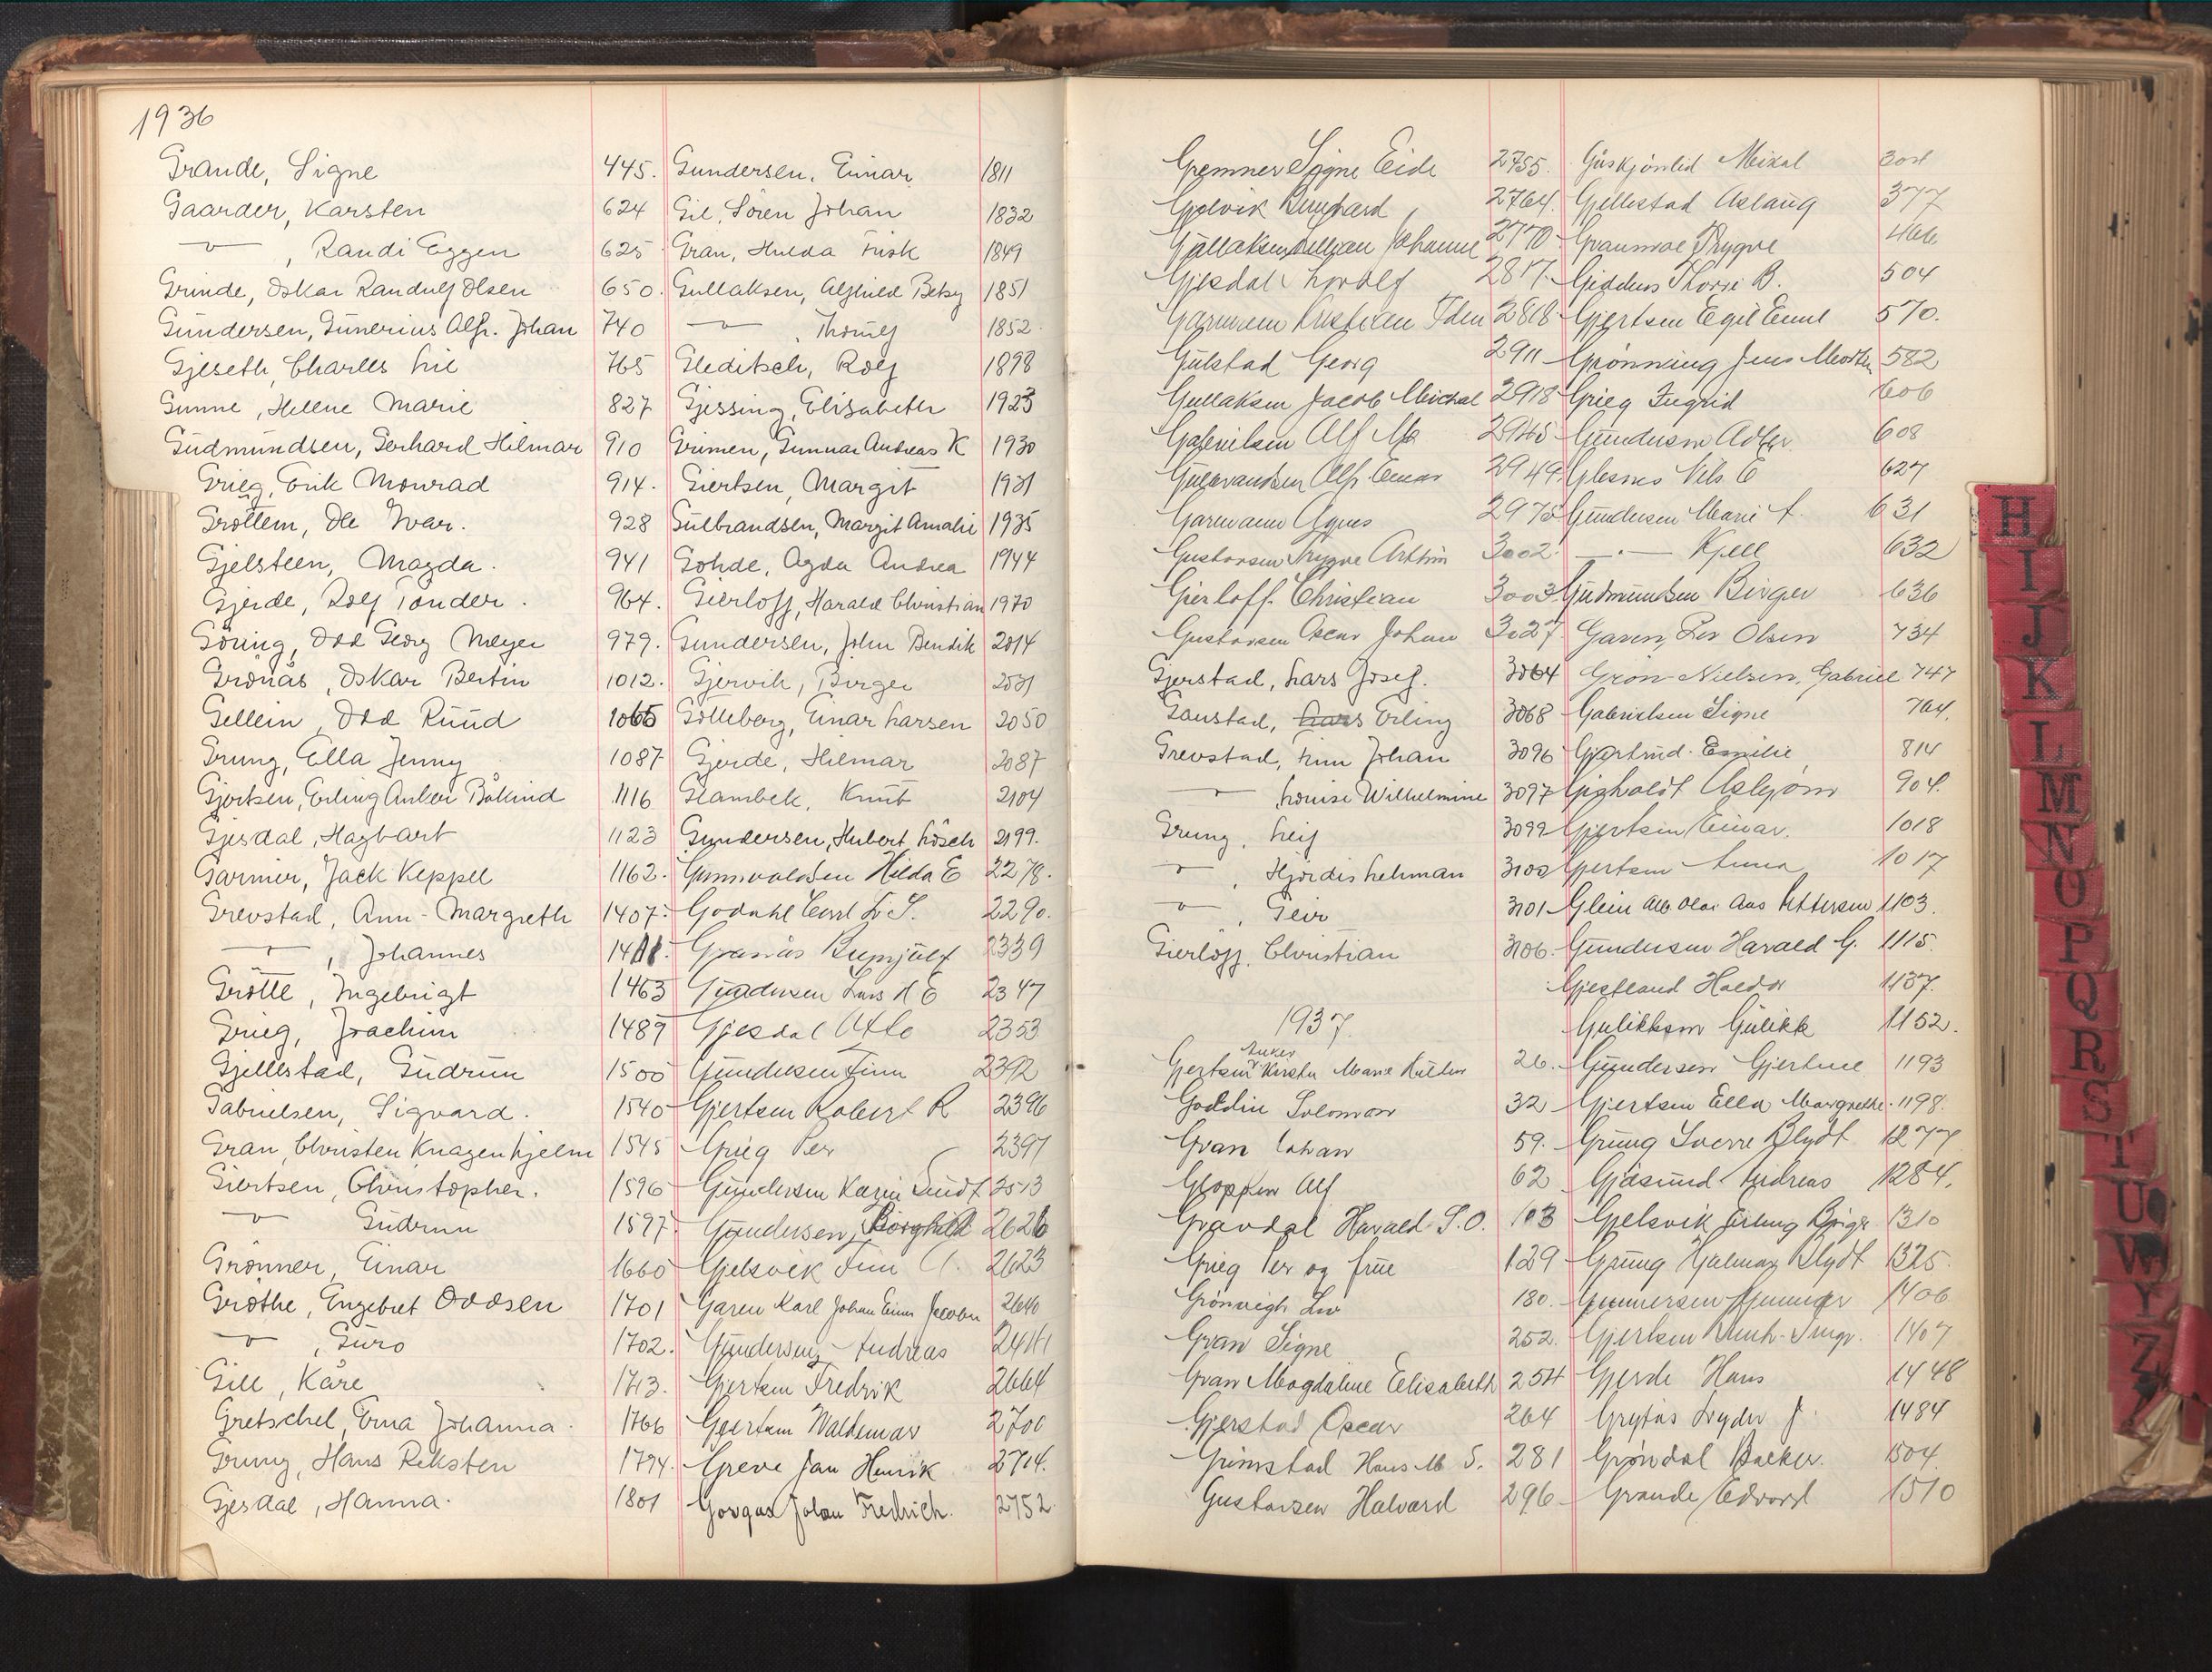 1936
Grande, Signe 445.
Gaarder, Karsten 624
—"—, Randi Eggen 625
Grinde, Oskar Randulf Olsen 650.
Gundersen, Gunerius Alfr. Johan 740
Gjeseth, Charles Lie 765
Gunne, Hellene Marie 827
Gudmundsen, Gerhard Hilmar 910
Grieg, Erik Monrad 914.
Grøttem, Ole Ivar. 928
Gjelsteen, Magda. 941
Gjerde, Rolf Tønder. 964.
Göring, Odd Georg Meyer 979.
Grönås, Oskar Bertin 1012.
Gellein, Odd Ruud 1065
Grung, Ella Jenny 1087
Gjertsen, Erling Anker Båkind 1116
Gjesdal, Hagbart 1123
Garnier, Jack Keppel 1162.
Grevstad, Ann-Margreth 1407.
—"—, Johannes 1411.
Grøtte, Ingebrigt 1463
Grieg, Joachim 1489
Gjellestad, Gudrun 1500
Gabrielsen, Sigvard. 1540
Gran, Christen Knagenhjelm 1545
Giertsen, Christopher. 1596
—"— Gudrun 1597.
Grönner, Einar 1660
Gröthe, Engebret Oddsen 1701
—"—, Guro 1702.
Gill, Kåre 1713.
Gretschel, Erna Johanna. 1766
Grung, Hans Reksten 1794.
Gjesdal, Hanna. 1801
Gundersen, Einar 1811
Gil, Sören Johan 1832
Gran, Hulda Frisk 1849
Gullaksen, Alfhild Betsy 1851
—"—, Thoralf 1852
Gleditsch, Rolf 1898
Gjessing, Elisabeth 1923
Grimen, Gunnar Andreas K 1930
Giertsen, Margit 1931
Gulbrandsen, Margit Amalie 1935
Gohde, Agda Andrea 1944
Gierløff, Harald Christian 1970
Gundersen, John Bendik 2014
Gjervik, Birger 2031
Golleberg, Einar Larsen 2050
Gjerde, Hilmar 2087
Glambek, Knut 2104
Gundersen, Hubert Lösch 2199.
Gunnvaldsen Hilda E 2278.
Godahl Carl Fr S. 2290.
Granås Brynjulf 2339
Gundersen Lars H E 2347
Gjesdal Atle 2353
Gundersen Finn 2392
Gjertsen Robert R 2396
Grieg Per 2397
Gundersen Karin Lindt 2513
Gundersen, Borghild 2626
Gjelsvik Finn A. 2623
Garen Karl Johan Einar Jacobsen 2640
Gundersen, Andreas 2641
Gjertsen Fredrik 2664
Gjertsen Waldemar 2700
Greve Jan Henrik 2714.
Gorgas Johan Fredrich. 2752
Gremner Signe Eide 2755.
Gjelvik Bernhard 2764.
Gullaksen Lillian Johanne 2770
Gjesdal Lovolf 2817.
Garmann Kristian Fden 2818
Gulstad Georg 2911
Gullaksen Jacob Michal 2918
Gabrielsen Alf M 2945
Gulbrandsen Alf Einar 2949
Garmann Agnes 2975
Gustavsen Trygve Arthur 3002.
Gierloff. Christian 3003
Gustavsen Oscar Johan 3027
Gjerstad, Lars Josef. 3064
Gaustad, Erling 3068
Grevstad, Finn Johan 3096
—"— Louise Wilhelmine 3097
Grung, Leif 3099
—"—, Hjørdis Lehman 3100
—"—, Geir 3101
Gierløff, Christian 3106.
1937.
Anker
Gjertsen Kirsten Marie Kielland 26.
Goldin Solomon 32
Gran Johan 59.
Gloppen Alf 62
Gravdal Harald S.O. 103
Grieg Per og frue 129
Grønvigh Liv 180.
Gran Signe 252.
Gran Magdaline Elisabeth 254
Gjerstad Oscar 264
Grimstad Hans M S. 281
Gustavsen Halvard 296
Gåskjønlid Mikal
Gjellestad Aslaug 377
Graunvae Trygve 466
Giddens Thorri B. 504
Gjertsen Egil Emil 570.
Grønning Jens Morten 582
Grieg Ingrid 606
Gundersen Adler 608
Glesnes Nils E 627
Gundersen Marie A. 631
—"— Kjell 632
Gudmundsen Birger 636
Garen, Per Olsen 734
Grön-Nielsen, Gabriel 747
Gabrielsen Signe 764.
Gjertrud. Emilie 814
Gigholdt Asbjørn 904.
Gjertsen Einar. 1018
Gjertsen Anna 1017
Glein Alb Olai Aas Pettersen 1103.
Gundersen Harald G. 1115.
Gjestland Haldor 1137.
Gulikksen Gulikk 1152.
Gundersen Gjertine 1193
Gjertsen Ella Margrethe. 1198.
Grung Sverre Blydt 1277
Gjøsund Andreas 1284.
Gjelsvik Erling Birger 1310
Grung Hjalmar Blydt 1325.
Gunnersen Gunnar 1406
Gjertsen 1407
Gjerde Hans 1448
Grytås Lyder J. 1484
Grøndal Backer. 1504.
Grande Edvard 1510
H
I
J
K
L
M
N
O
P
Q
R
S
T
U
W
Y
Z